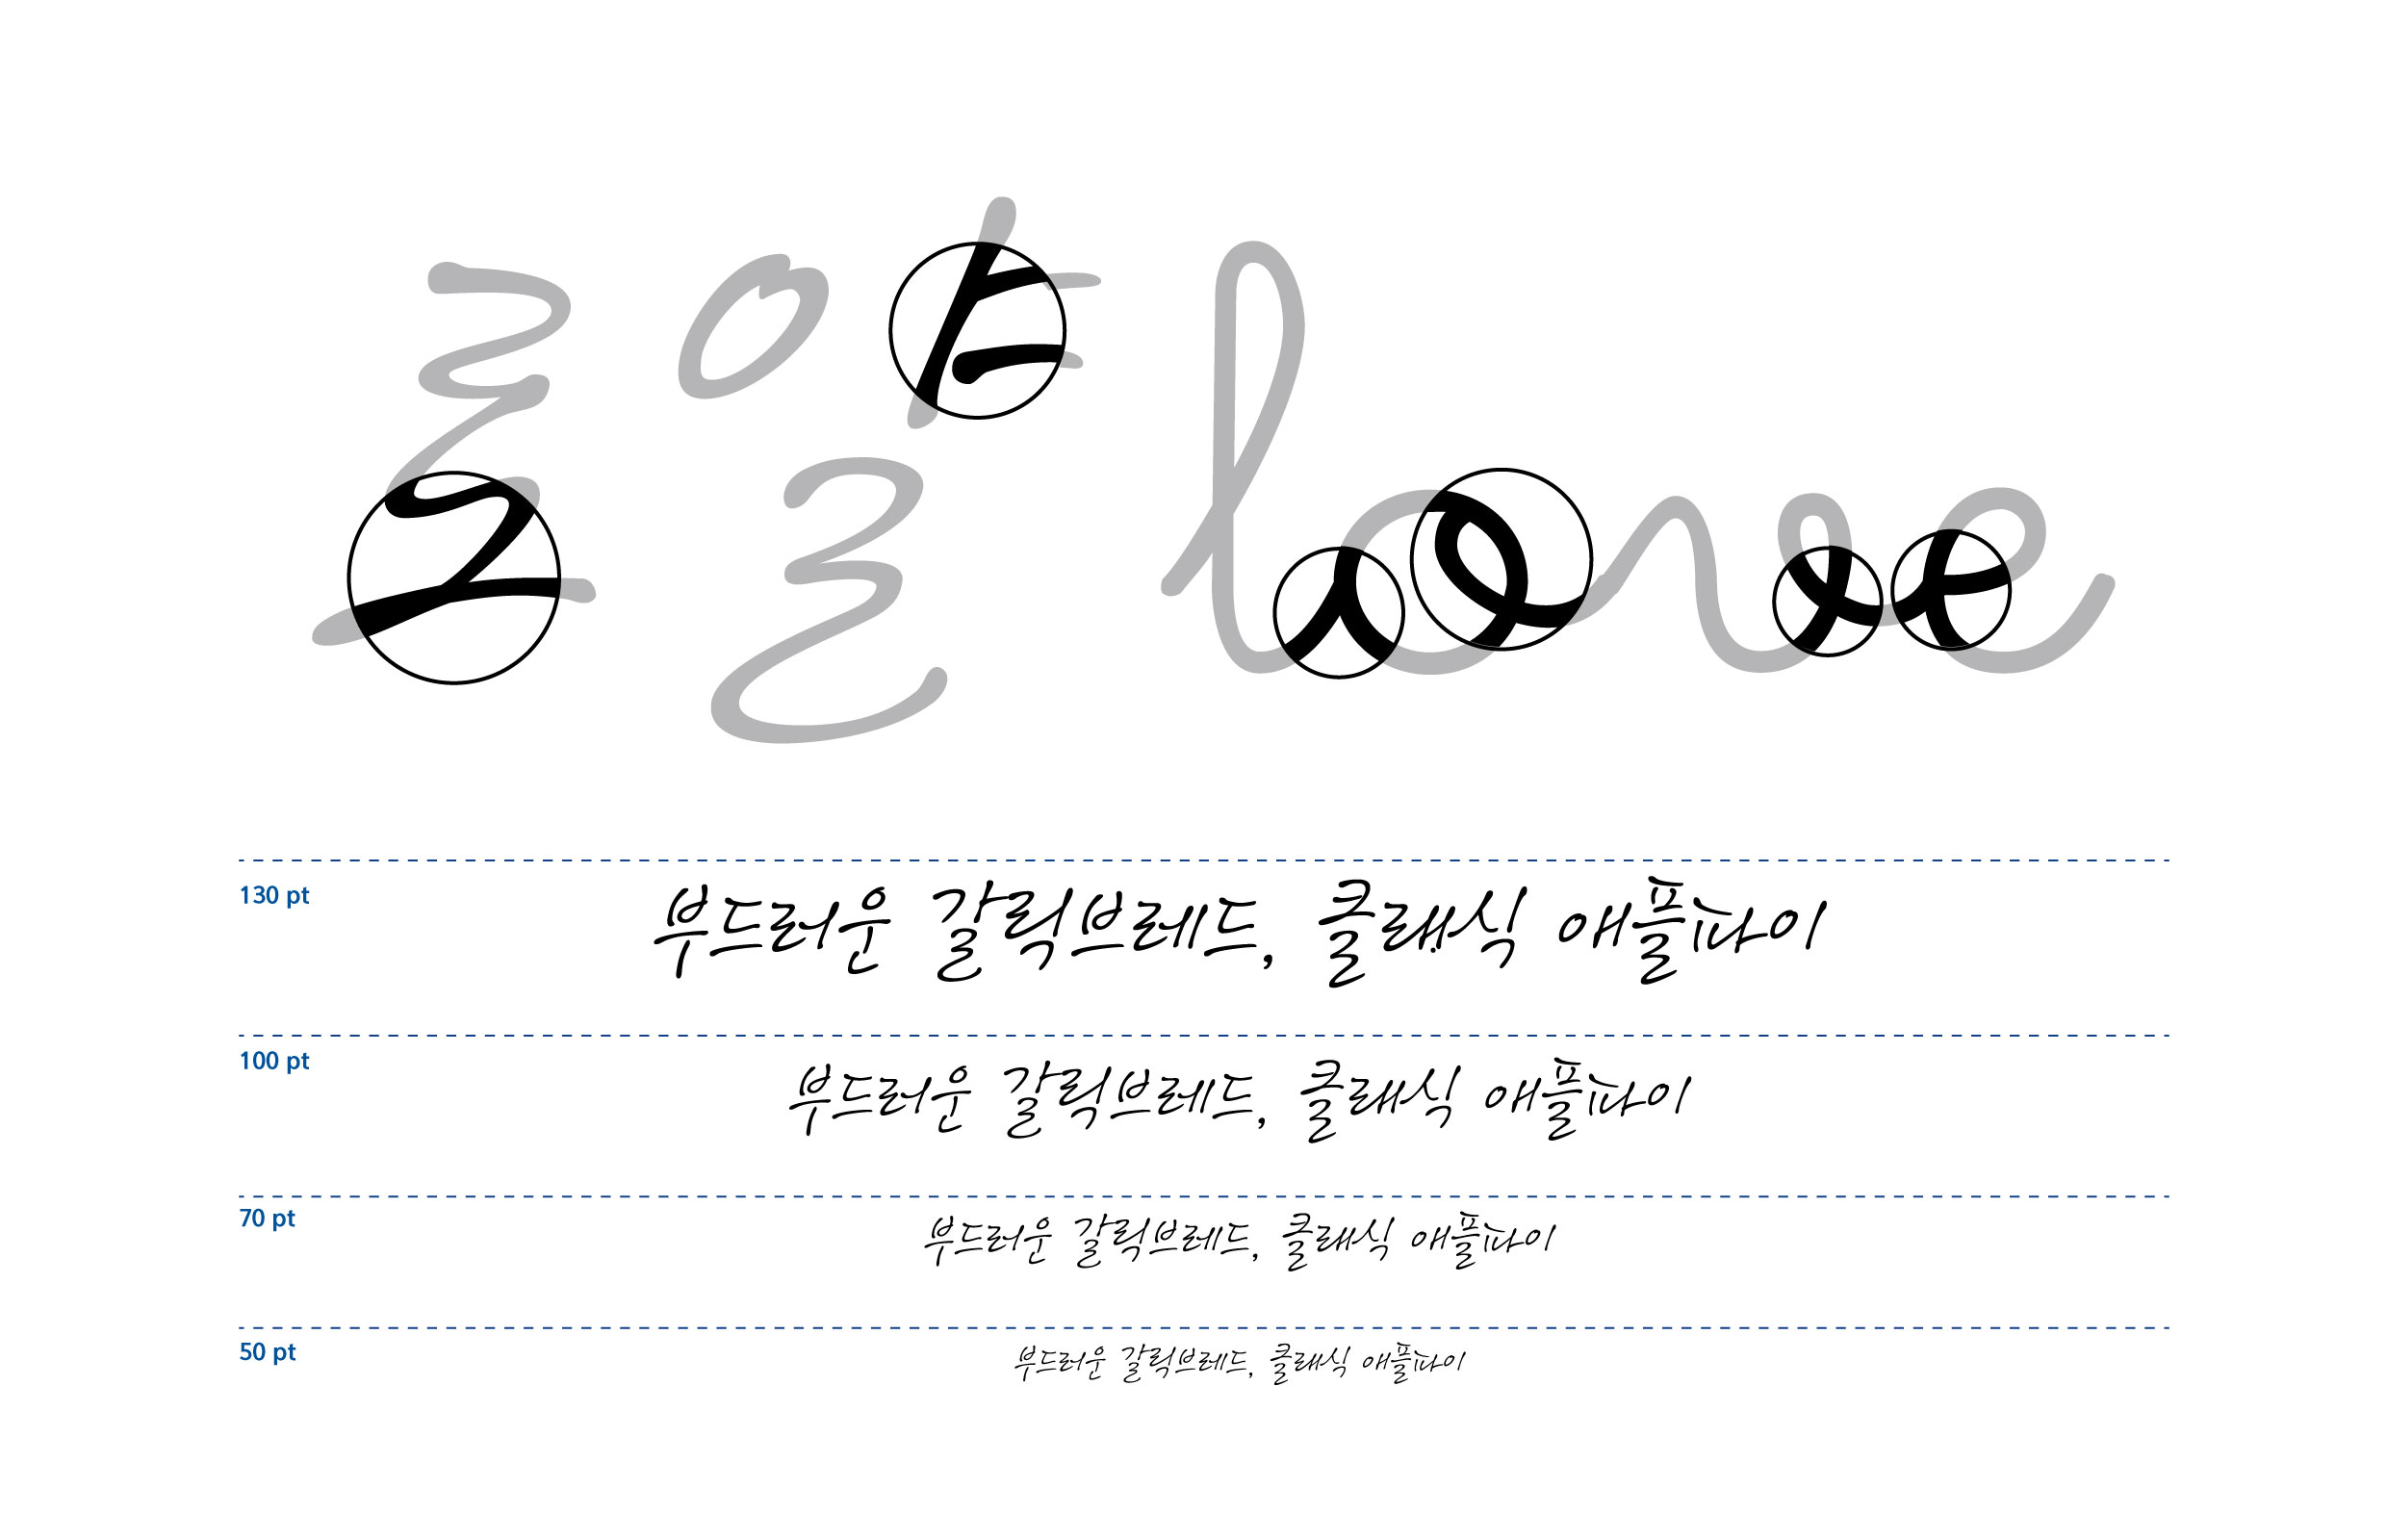 로얄 love
130 pt
부드러운 갈릭브레드, 클래식 애플파이
100 pt
부드러운 갈릭브레드, 클래식 애플파이
70 pt
부드러운 갈릭브레드, 클래식 애플파이
50 pt
부드러운 갈릭브레드, 클래식 애플파이